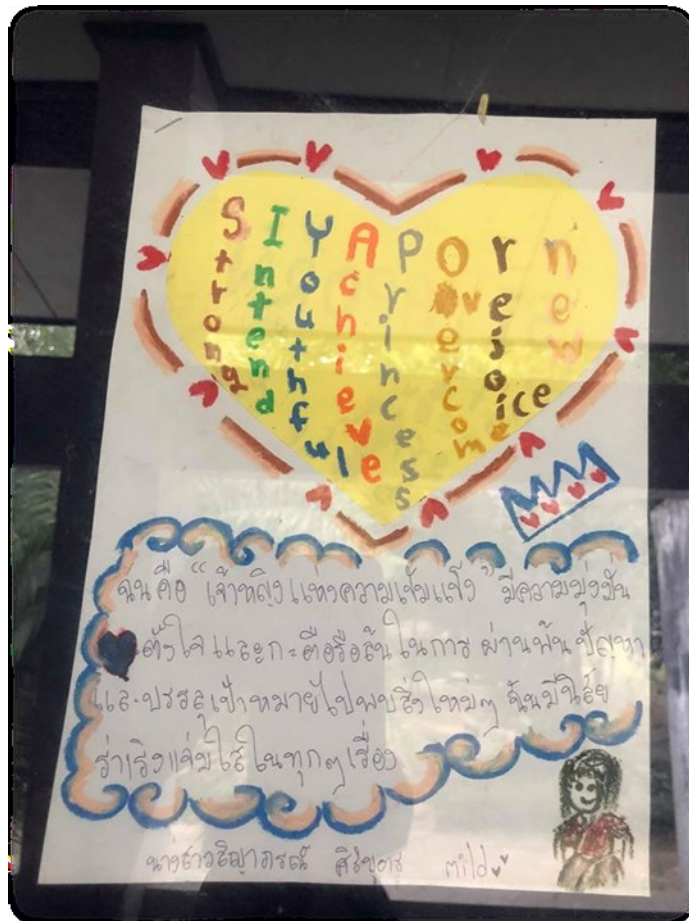 SIYAPorn
Strong
Intend
Youthful
Achieve
Princess
Overcome
rejoice
new
ฉันคือ "เจ้าหญิงแห่งความเข้มแข็ง" มีความมุ่งมั่น
ตั้งใจและกะตือรือล้นในการ ผ่านพ้นปัญหา
และบรรลุเป้าหมายไปพบสิ่งใหม่ๆ ฉันมีนิสัย
ร่าเริงแจ่มใสในทุกๆเรื่อง
นางสาว mild